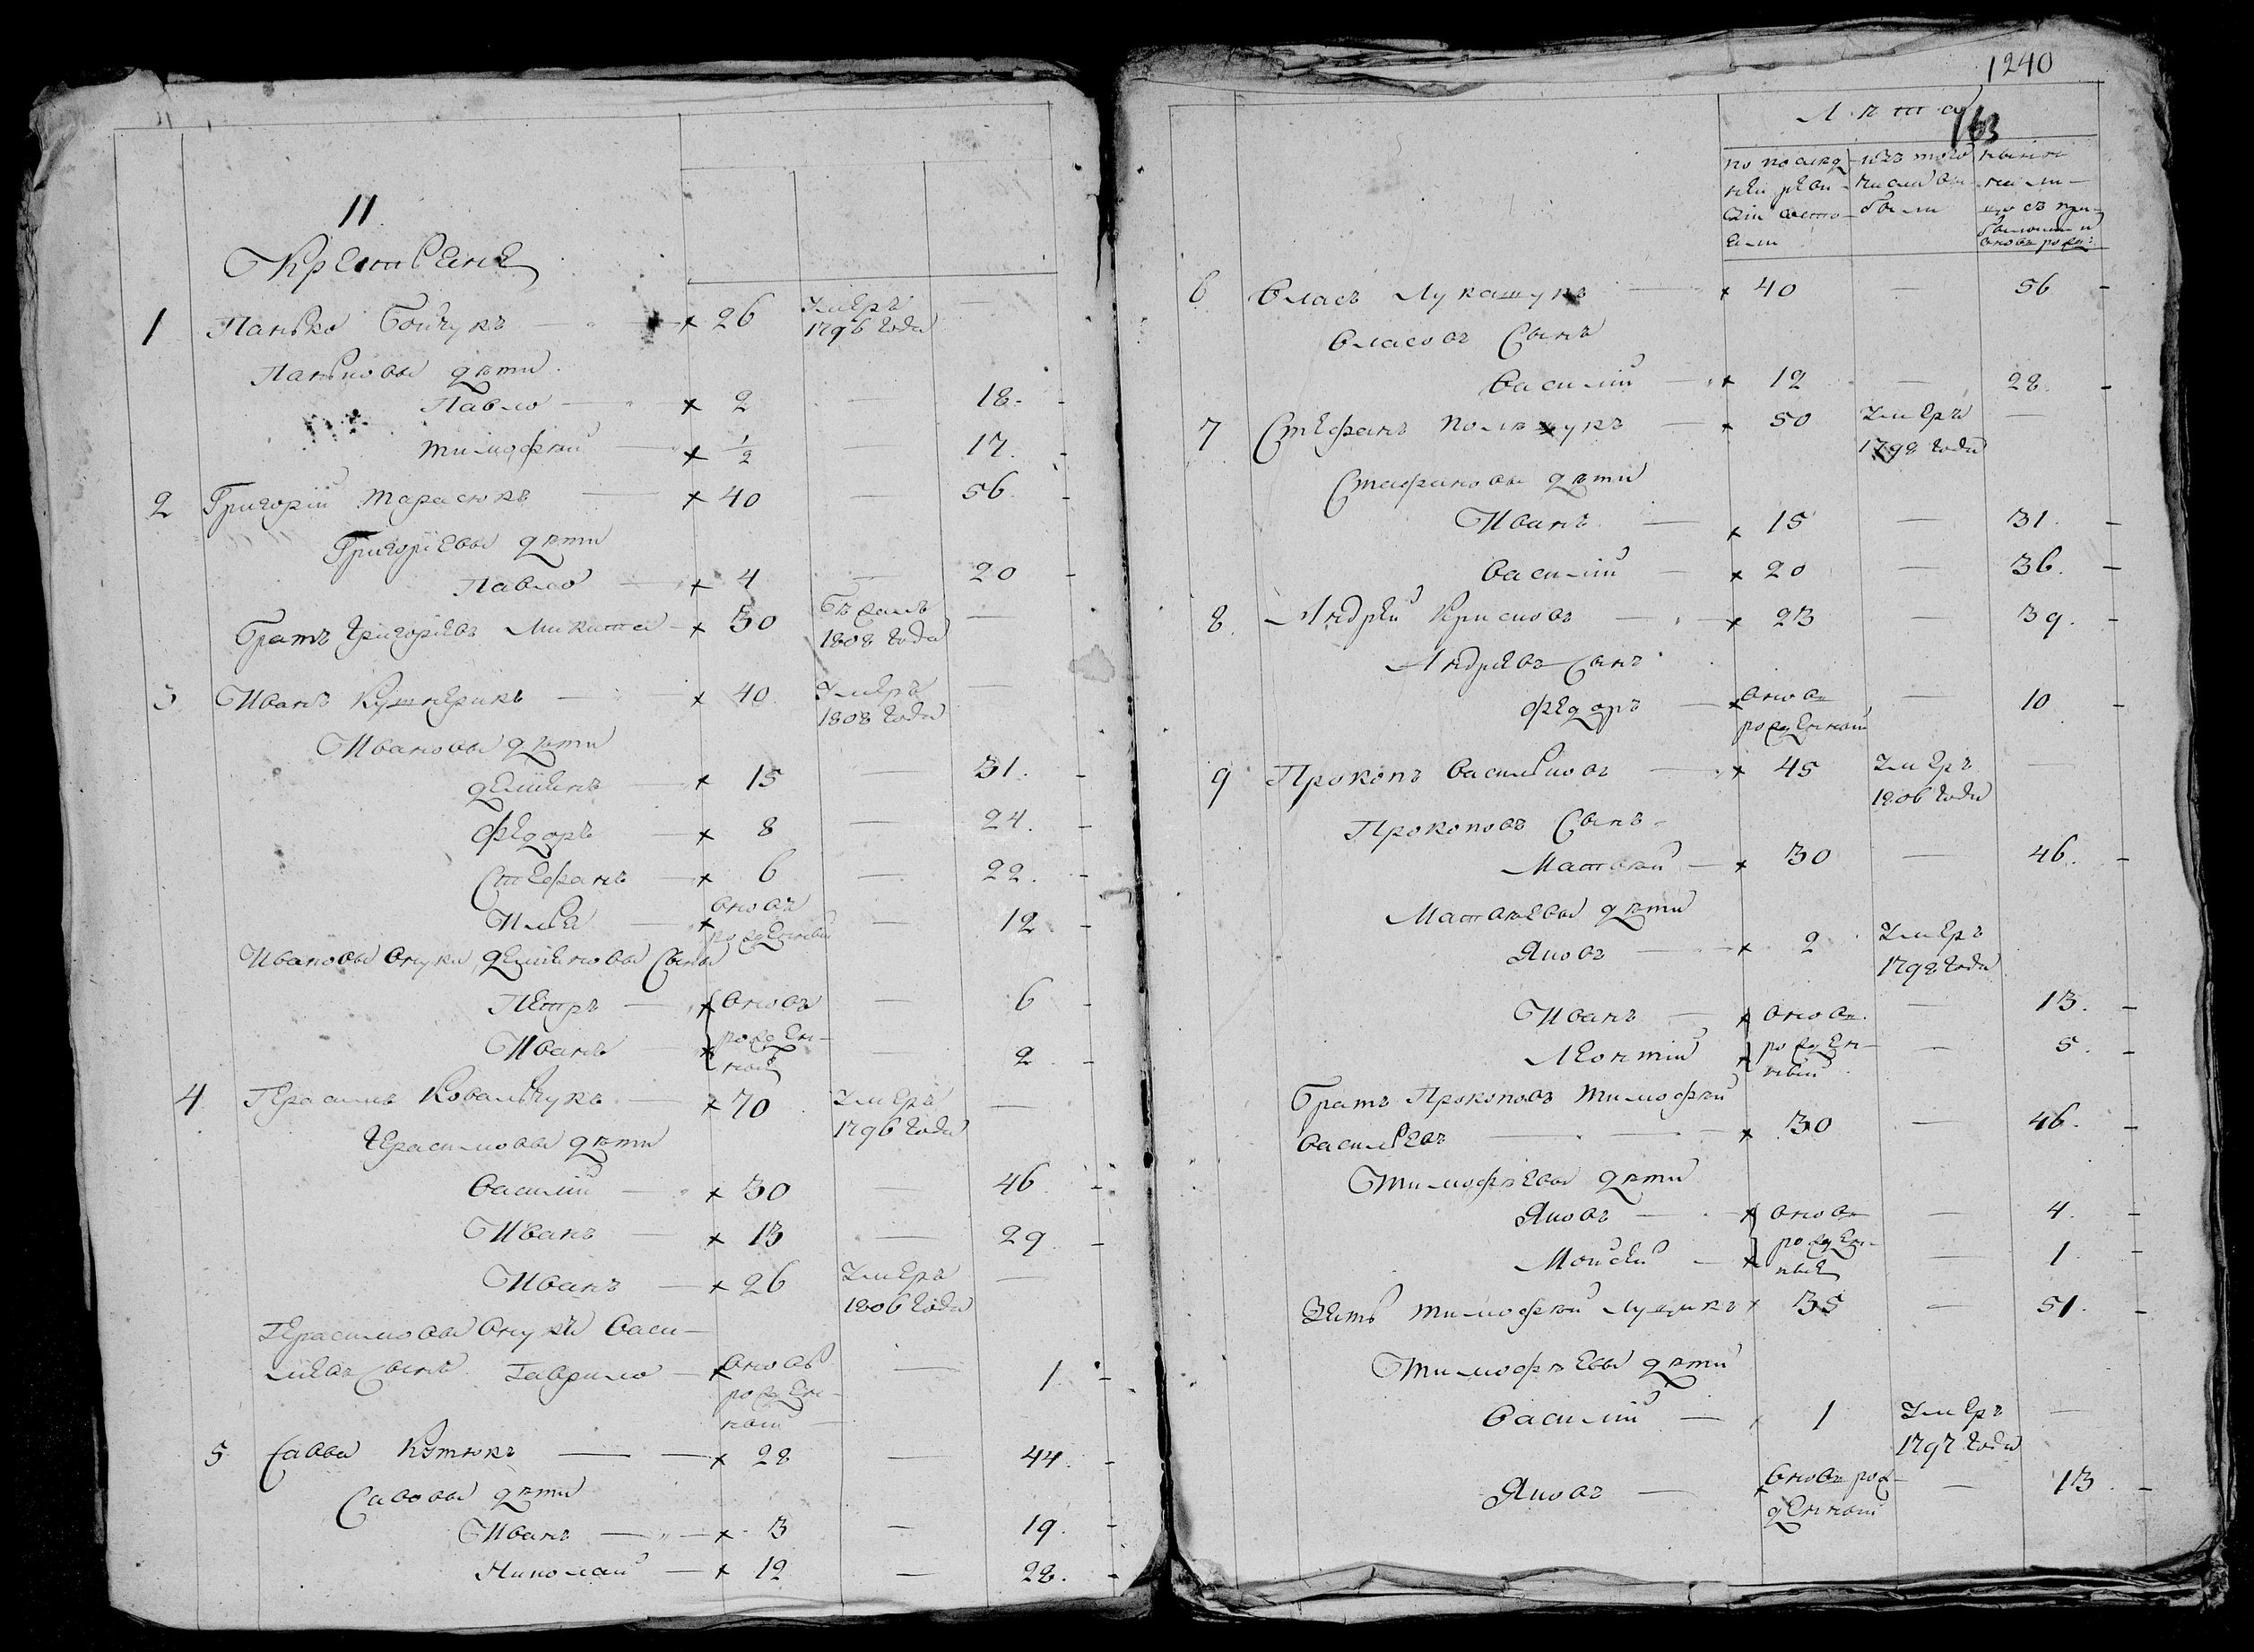 11
Крестьяне
1 Панько Бончукъ 26 Умеръ —
1796 года
Паньковы дѣти
Павло × 2 — 18.
Тимофѣй × 1/2 — 17.
2 Григорій Тарасюкъ × 40 — 56.
Григорiевы дѣти
Павло × 4 — 20
Братъ Григорiевъ Микита × 30 Бѣжалъ —
1808 года
3 Иванъ Кушнерикъ × 40 Умеръ —
1808 года
Ивановы дѣти
Деміянъ × 15 — 31.
Федоръ × 8 — 24.
Стефанъ × 6 — 22.
Илья × вновь — 12
рожденный
Ивановы внуки, Деміяновы сыны
Петръ × вновь — 6
Иванъ × рожден- — 2
ные
4 Герасимъ Ковальчукъ × 70 Умеръ —
1796 года
Герасимовы дѣти
Василій × 30 — 46
Иванъ × 13 — 29
Иванъ × 26 Умеръ —
1806 года
Герасимовы внуки Васи-
ліевъ сынъ Гаврило × вновь — 1.
рожден-
ный
5 Савва × 28 — 44.
Савовы дѣти
Иванъ × 3 — 19.
Николай × 12 — 28.
1240
Лѣта
163
по послед- изъ того нынѣ
ней реви- числа вы- на ли-
зіи состо- были цо съ при-
яли былыми и
вновь рожд:
6 Власъ Лукашукъ × 40 — 56
Власовъ Сынъ
Василій × 12 — 28.
7 Стефанъ Полищукъ × 50 Умеръ —
1798 года
Стефановы дѣти
Иванъ × 15 — 31.
Василій × 20 — 36.
8. Андрей Крисковъ × 23 — 39.
Андреевъ Сынъ
Федоръ × вновь — 10
рожденный
9 Прокопъ Васильковъ × 45 Умеръ —
1806 года
Прокоповъ Сынъ
Матвѣй × 30 — 46.
Матвѣевы дѣти
Яковъ × 2 Умеръ
1798 года
Иванъ × вновь — 13.
Леонтій × рожден- — 5.
ный
Братъ Прокоповъ Тимофѣй
Васильевъ × 30 — 46.
Тимофѣевы дѣти
Яковъ × вновь — 4.
Мойсей × рожден- — 1.
ные
Зять Тимофѣй Луцикъ × 35 — 51.
Тимофѣевы дѣти
Василій 1 Умеръ —
1797 года
Яковъ × вновь рож- — 13
денный